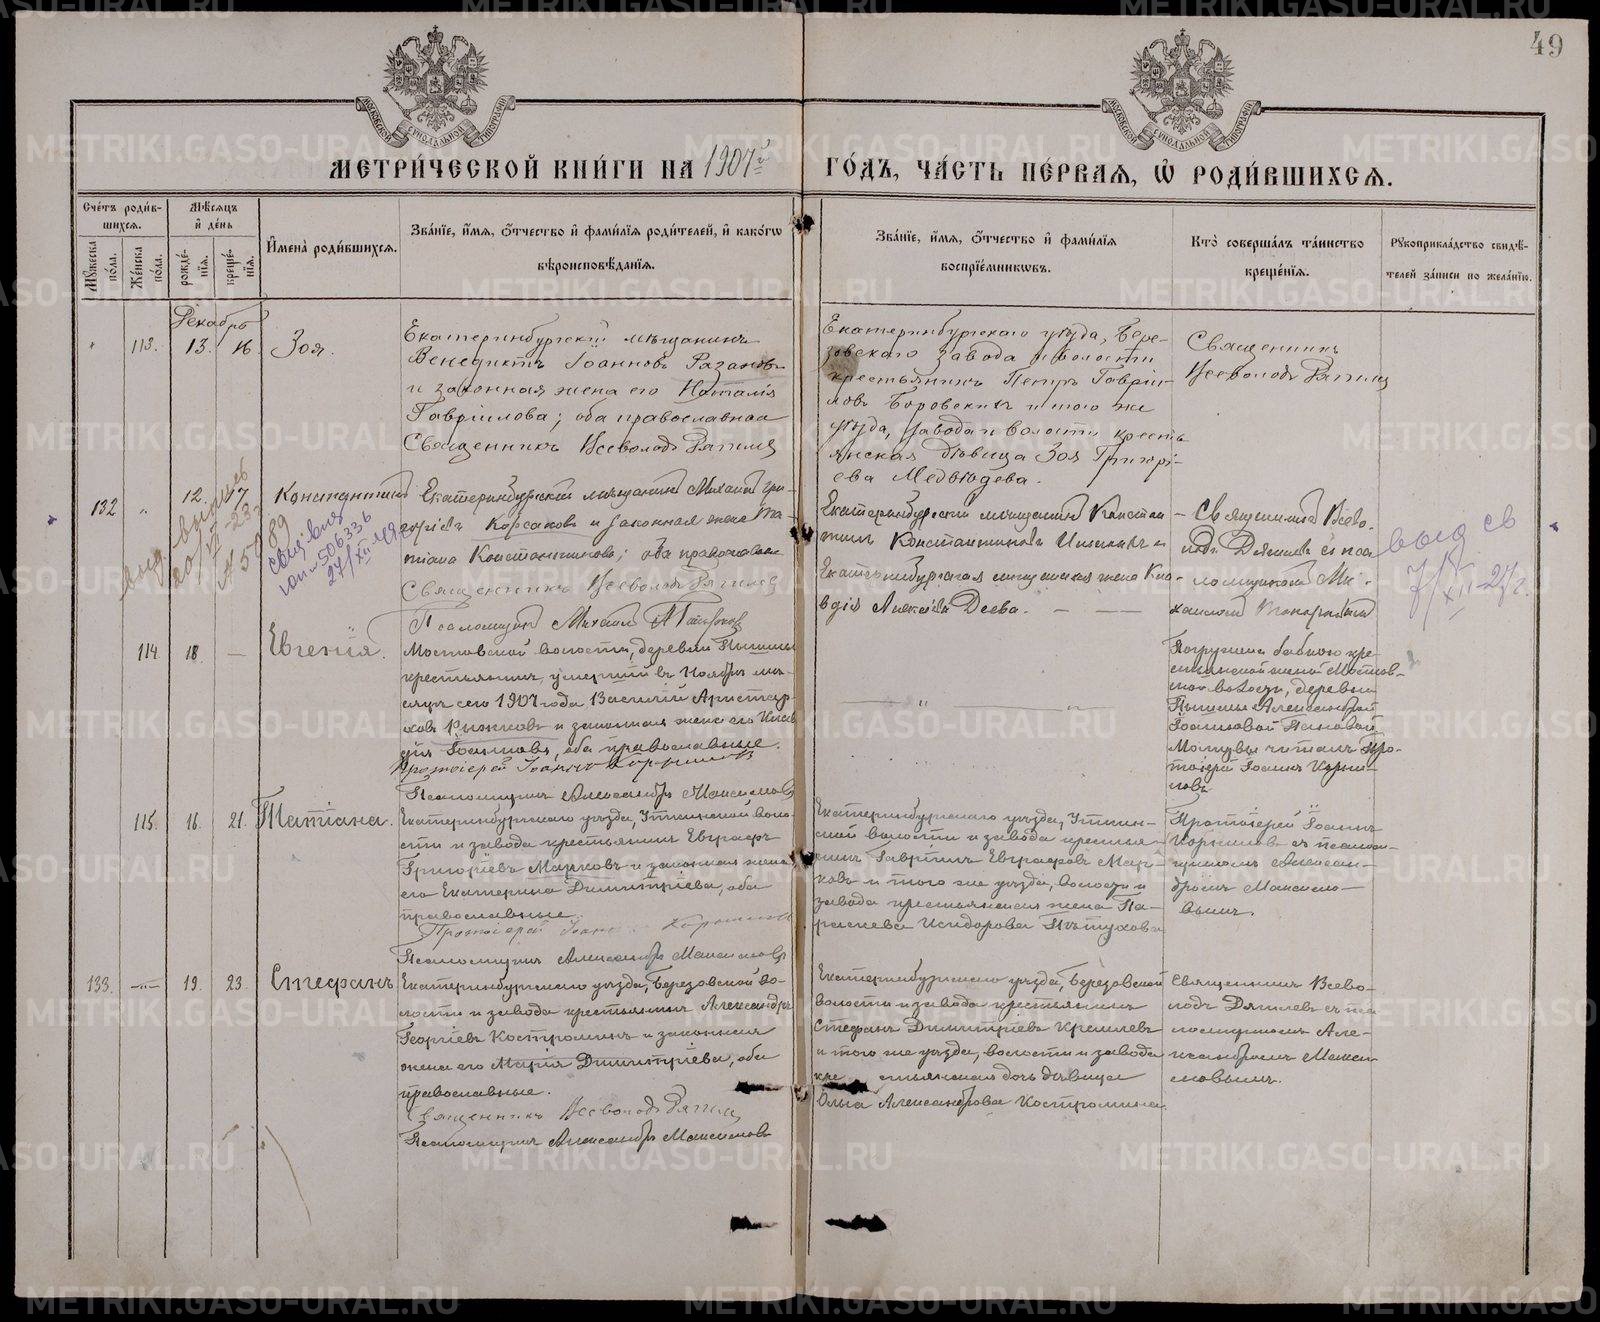 49
МОСКОВСКОЙ СѴНОДАЛЬНОЙ ТИПОГРАФІИ
МОСКОВСКОЙ СѴНОДАЛЬНОЙ ТИПОГРАФІИ
МЕТРИ́ЧЕСКОЙ КНИ́ГИ НА 1907й ГО́ДЪ, ЧА́СТЬ ПЕ́РВАЯ, Ѡ РОДИ́ВШИХСЯ.
Сче́тъ роди́в-
шихся.
Мꙋжеска по́ла.
Же́нска по́ла.
Мѣ́сяцъ
и҆ де́нь
рожде́нїя.
креще́нїя.
И҆мена̀ роди́вшихся.
Зва́нїе, и҆́мя, ѻ҆́тчество и҆ фами́лїя роди́телей, и҆ како́гѡ
вѣроисповѣ́данїя.
Зва́нїе, и҆́мя, ѻ҆́тчество и҆ фами́лїя
воспрїе́мникѡвъ.
Кто̀ соверша́лъ та́инство
креще́нїя.
Рꙋкоприкла́дство свидѣ́-
телей за́писи по жела́нїю.
Декабрь
113. 13. 16. Зоя.
Екатеринбургскій мѣщанинъ
Венедиктъ Іоанновъ Разановъ
и законная жена его Наталія
Гавріилова; оба православные
Священникъ Всеволодъ
Екатеринбургскаго уѣзда, Бере-
зовскаго завода и волости
крестьянинъ Петръ Гаврiи-
ловъ Боровскихъ и того же
уѣзда, завода и волости кресть-
янская дѣвица Зоя Григорі-
ева Медвѣдева.
Священникъ
Всеволодъ
132 12. 17 Константинъ
Екатеринбургскій мѣщанинъ Михаилъ Гри-
горіевъ Корсаковъ и законная жена Та-
тіана Константинова; оба православные
Священникъ Всеволодъ
Псаломщикъ Михаилъ
Екатеринбургскій мѣщанинъ Констан-
тинъ Константиновъ и
Екатеринбургская мѣщанская жена Кла-
вдія Алексѣева Деева.
Священникъ Всево-
лодъ с пса
ломщикомъ Ми-
хаиломъ
50633
27/XII
выд св
7/XII-27г.
114 18 — Евгенія.
Мостовской волости, деревни Пышмы
крестьянинъ, умершій въ Ноябрѣ мѣ-
сяцѣ сего 1907 года Василій Аристар-
ховъ и законная жена его Клав
дія Іоаннова, оба православные.
Протоіерей Іоаннъ Корнилов
Псаломщикъ Александръ Максимовъ
Погружена бабкою кре-
стьянской женой Мостов-
ской волости, деревни
Пышмы Александрой
Іоанновой Пановой
Молитвы читалъ Про-
тоіерей Іоаннъ Корни-
ловъ
115. 16. 21. Татіана.
Екатеринбургскаго уѣзда, Уткинской воло-
сти и завода крестьянинъ Евграфъ
Григоріевъ Марковъ и законная жена
его Екатерина Димитріева, оба
православные.
Протоіерей Іоанн Корнилов
Псаломщикъ Александръ Максимовъ
Екатеринбургскаго уѣзда, Уткин-
ской волости и завода крестья-
нинъ Гавріилъ Евграфовъ Мар-
ковъ и того же уѣзда, волости и
завода крестьянская жена Па-
раскева Исидорова Пѣтухова
Протоіерей Іоаннъ
Корниловъ съ псалом-
щикомъ Алексан-
дромъ Максимо-
вымъ.
133. 19. 23. Стефанъ
Екатеринбургскаго уѣзда, Березовской во-
лости и завода крестьянинъ Александръ
Георгіевъ Костроминъ и законная
жена его Марія Димитріева, оба
православные.
Священникъ Всеволодъ
Псаломщикъ Александръ Максимовъ
Екатеринбургскаго уѣзда, Березовской
волости и завода крестьянинъ
Стефанъ Димитріевъ Кремлевъ
и того же уѣзда, волости и завода
кре стьянская дочь дѣвица
Ольга Александрова Костромина.
Священникъ Всево-
лодъ съ пса-
ломщикомъ Але-
ксандромъ Макси-
мовымъ.
METRIKI.GASO-URAL.RU